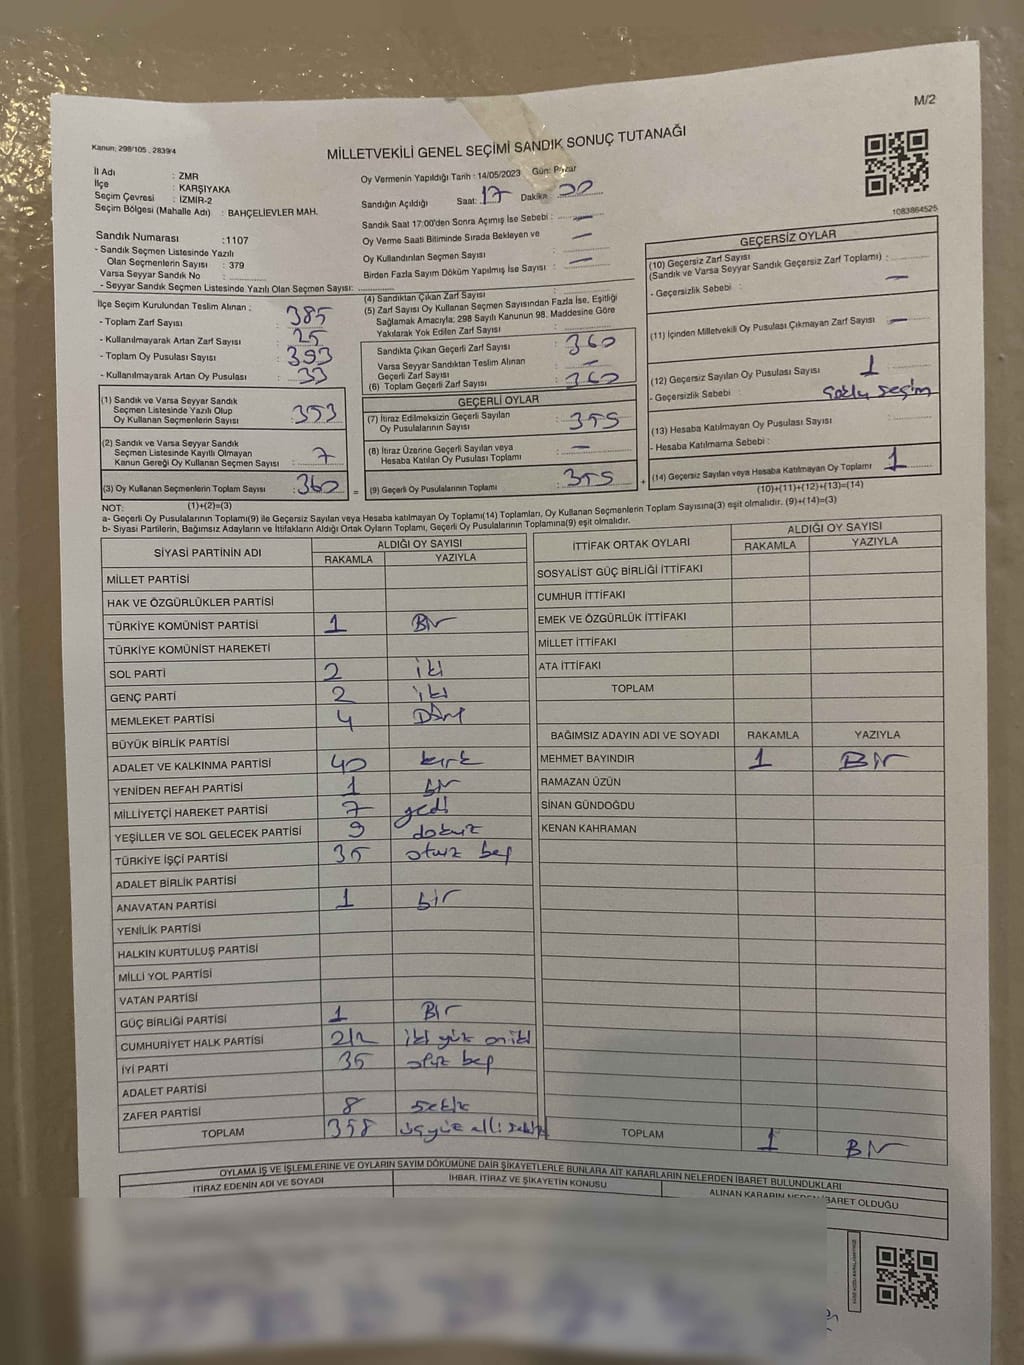 M/2
Kanun: 298/105 , 2839/4
MİLLETVEKİLİ GENEL SEÇİMİ SANDIK SONUÇ TUTANAĞI
İl Adı : ZMR
İlçe : KARŞIYAKA
Seçim Çevresi : İZMİR-2
Seçim Bölgesi (Mahalle Adı) : BAHÇELİEVLER MAH.
Sandık Numarası : 1107
- Sandık Seçmen Listesinde Yazılı
Olan Seçmenlerin Sayısı : 379
Varsa Seyyar Sandık No :
- Seyyar Sandık Seçmen Listesinde Yazılı Olan Seçmen Sayısı:
Oy Vermenin Yapıldığı Tarih : 14/05/2023 Gün: Pazar
Sandığın Açıldığı Saat: 17 Dakika: 00
Sandık Saat 17:00'den Sonra Açılmış İse Sebebi : —
Oy Verme Saati Bitiminde Sırada Bekleyen ve —
Oy Kullandırılan Seçmen Sayısı
Birden Fazla Sayım Döküm Yapılmış İse Sayısı : —
1083864525
İlçe Seçim Kurulundan Teslim Alınan :
- Toplam Zarf Sayısı : 385
- Kullanılmayarak Artan Zarf Sayısı : 25
- Toplam Oy Pusulası Sayısı : 393
- Kullanılmayarak Artan Oy Pusulası : 33
(1) Sandık ve Varsa Seyyar Sandık
Seçmen Listesinde Yazılı Olup
Oy Kullanan Seçmenlerin Sayısı : 353
(2) Sandık ve Varsa Seyyar Sandık
Seçmen Listesinde Kayıtlı Olmayan
Kanun Gereği Oy Kullanan Seçmen Sayısı : 7
(3) Oy Kullanan Seçmenlerin Toplam Sayısı : 360
(4) Sandıktan Çıkan Zarf Sayısı :
(5) Zarf Sayısı Oy Kullanan Seçmen Sayısından Fazla İse, Eşitliği
Sağlamak Amacıyla; 298 Sayılı Kanunun 98. Maddesine Göre
Yakılarak Yok Edilen Zarf Sayısı :
Sandıkta Çıkan Geçerli Zarf Sayısı : 360
Varsa Seyyar Sandıktan Teslim Alınan
Geçerli Zarf Sayısı : —
(6) Toplam Geçerli Zarf Sayısı : 360
GEÇERLİ OYLAR
(7) İtiraz Edilmeksizin Geçerli Sayılan
Oy Pusulalarının Sayısı : 355
(8) İtiraz Üzerine Geçerli Sayılan veya
Hesaba Katılan Oy Pusulası Toplamı : —
= (9) Geçerli Oy Pusulalarının Toplamı : 355 +
GEÇERSİZ OYLAR
(10) Geçersiz Zarf Sayısı
(Sandık ve Varsa Seyyar Sandık Geçersiz Zarf Toplamı) :
- Geçersizlik Sebebi : —
(11) İçinden Milletvekili Oy Pusulası Çıkmayan Zarf Sayısı : —
(12) Geçersiz Sayılan Oy Pusulası Sayısı : 1
- Geçersizlik Sebebi : seçim
(13) Hesaba Katılmayan Oy Pusulası Sayısı :
- Hesaba Katılmama Sebebi :
(14) Geçersiz Sayılan veya Hesaba Katılmayan Oy Toplamı : 1
NOT: (1)+(2)=(3) (10)+(11)+(12)+(13)=(14)
a- Geçerli Oy Pusulalarının Toplamı(9) ile Geçersiz Sayılan veya Hesaba katılmayan Oy Toplamı(14) Toplamları, Oy Kullanan Seçmenlerin Toplam Sayısına(3) eşit olmalıdır. (9)+(14)=(3)
b- Siyasi Partilerin, Bağımsız Adayların ve İttifakların Aldığı Ortak Oyların Toplamı, Geçerli Oy Pusulalarının Toplamına(9) eşit olmalıdır.
SİYASİ PARTİNİN ADI ALDIĞI OY SAYISI
RAKAMLA YAZIYLA
MİLLET PARTİSİ
HAK VE ÖZGÜRLÜKLER PARTİSİ
TÜRKİYE KOMÜNİST PARTİSİ 1 Bir
TÜRKİYE KOMÜNİST HAREKETİ
SOL PARTİ 2 iki
GENÇ PARTİ 2 iki
MEMLEKET PARTİSİ 4 Dört
BÜYÜK BİRLİK PARTİSİ
ADALET VE KALKINMA PARTİSİ 40 kırk
YENİDEN REFAH PARTİSİ 1 bir
MİLLİYETÇİ HAREKET PARTİSİ 7 yedi
YEŞİLLER VE SOL GELECEK PARTİSİ 9 dokuz
TÜRKİYE İŞÇİ PARTİSİ 35 otuz beş
ADALET BİRLİK PARTİSİ
ANAVATAN PARTİSİ 1 bir
YENİLİK PARTİSİ
HALKIN KURTULUŞ PARTİSİ
MİLLİ YOL PARTİSİ
VATAN PARTİSİ
GÜÇ BİRLİĞİ PARTİSİ 1 Bir
CUMHURİYET HALK PARTİSİ 212 iki yüz on iki
İYİ PARTİ 35 otuz beş
ADALET PARTİSİ
ZAFER PARTİSİ 8 sekiz
TOPLAM 358 üçyüz elli sekiz
İTTİFAK ORTAK OYLARI ALDIĞI OY SAYISI
RAKAMLA YAZIYLA
SOSYALİST GÜÇ BİRLİĞİ İTTİFAKI
CUMHUR İTTİFAKI
EMEK VE ÖZGÜRLÜK İTTİFAKI
MİLLET İTTİFAKI
ATA İTTİFAKI
TOPLAM
BAĞIMSIZ ADAYIN ADI VE SOYADI RAKAMLA YAZIYLA
MEHMET BAYINDIR 1 Bir
RAMAZAN ÜZÜN
SİNAN GÜNDOĞDU
KENAN KAHRAMAN
TOPLAM 1 Bir
OYLAMA İŞ VE İŞLEMLERİNE VE OYLARIN SAYIM DÖKÜMÜNE DAİR ŞİKAYETLERLE BUNLARA AİT KARARLARIN NELERDEN İBARET BULUNDUKLARI
İTİRAZ EDENİN ADI VE SOYADI İHBAR, İTİRAZ VE ŞİKAYETİN KONUSU ALINAN KARARIN NEDEN İBARET OLDUĞU